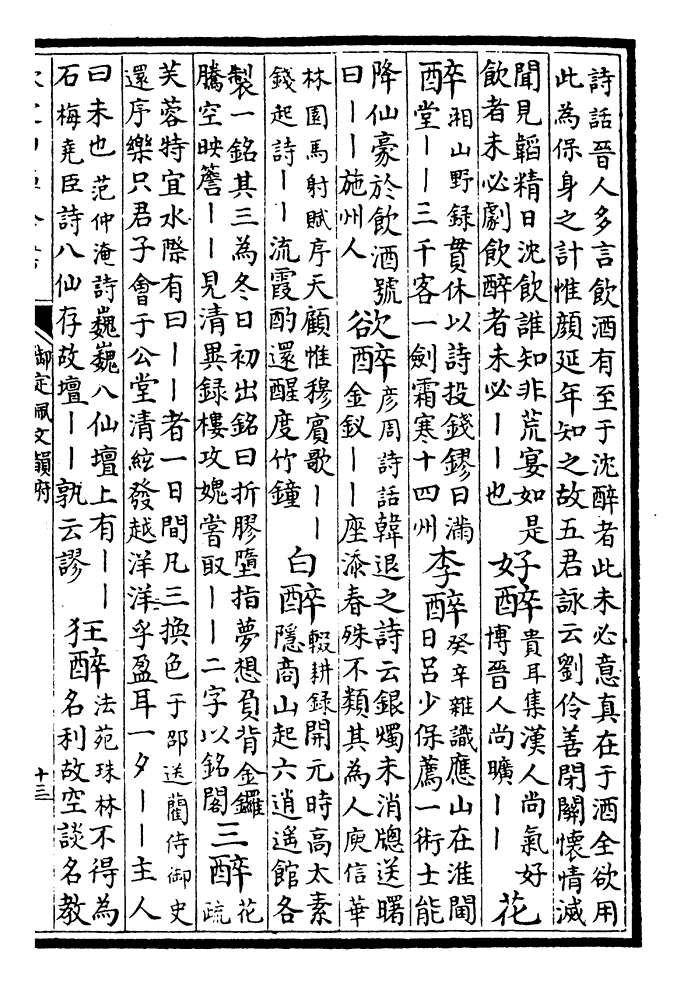 詩話晉人多言飲酒有至于沈醉者此未必意真在于酒全欲用
此為保身之計惟顔延年知之故五君詠云劉伶善閉關懷情滅
聞見韜精日沈飲誰知非荒宴如是
飲者未必劇飲醉者未必——也
好醉
貴耳集漢人尚氣好
博晉人尚曠——
花
醉
湘山野録貫休以詩投錢鏐曰滿
堂——三千客一劍霜寒十四州
李醉
癸辛雜識應山在淮閫
日呂少保薦一術士能
降仙豪於飲酒號
曰——施州人
欲醉
彦周詩話韓退之詩云銀燭未消牕送曙
金釵——座添春殊不類其為人庾信華
林園馬射賦序天顧惟穆賓歌——
錢起詩——流霞酌還醒度竹鐘
白醉
輟耕録開元時高太素
隱商山起六逍遥館各
製一銘其三為冬日初出銘曰折膠墮指夢想負背金鑼
騰空映簷——見清異録樓攻媿嘗取——二字以銘閣
三醉
花
疏
芙蓉特宜水際有曰——者一日間凡三換色于邵送藺侍御史
還序樂只君子會于公堂清絃發越洋洋乎盈耳一夕——主人
曰未也范仲淹詩巍巍八仙壇上有——
石梅堯臣詩八仙存故壇——孰云謬
狂醉
法苑珠林不得為
名利故空談名教
御定佩文韻府
十三